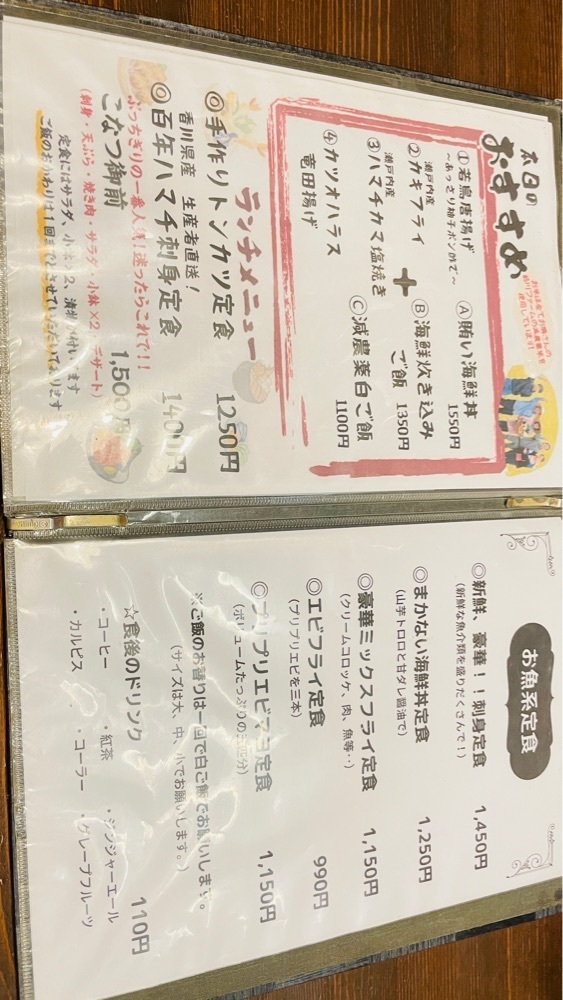 本日の
おすすめ
お米は全てお隣さんの
ファームの減農薬米を
使用しています!!
①若鳥唐揚げ
～あっさり柚子ポン酢で～
瀬戸内産
②カキフライ
瀬戸内産
③ハマチカマ塩焼き
④カツオハラス
竜田揚げ
＋
Ⓐ賄い海鮮丼
1550円
Ⓑ海鮮炊き込み
ご飯 1350円
Ⓒ減農薬白ご飯
1100円
ランチメニュー
◎手作りトンカツ定食 1250円
香川県産 生産者直送！
◎百年ハマチ刺身定食 1400円
ぶっちぎりの一番人気！迷ったらこれで！！
こなつ御前 1,500円
(刺身・天ぷら・焼き肉・サラダ・小鉢×2・デザート)
定食にはサラダ、小鉢×2、漬物が付いてます
ご飯のおかわりは１回までとさせていただいております
お魚系定食
◎新鮮、豪華！！刺身定食 1,450円
(新鮮な魚介類を盛りだくさんで！)
◎まかない海鮮丼定食 1,250円
(山芋トロロと甘ダレ醤油で)
◎豪華ミックスフライ定食 1,150円
(クリームコロッケ、肉、魚等‥)
◎エビフライ定食 990円
(プリプリエビを三本)
◎プリプリエビマヨ定食 1,150円
(ボリュームたっぷりの
※ご飯のお替りは一回で白ご飯でお願いします。
(サイズは大、中、小でお願いします。)
☆食後のドリンク 110円
・コーヒー ・紅茶 ・ジンジャーエール
・カルピス ・コーラー ・グレープフルーツ